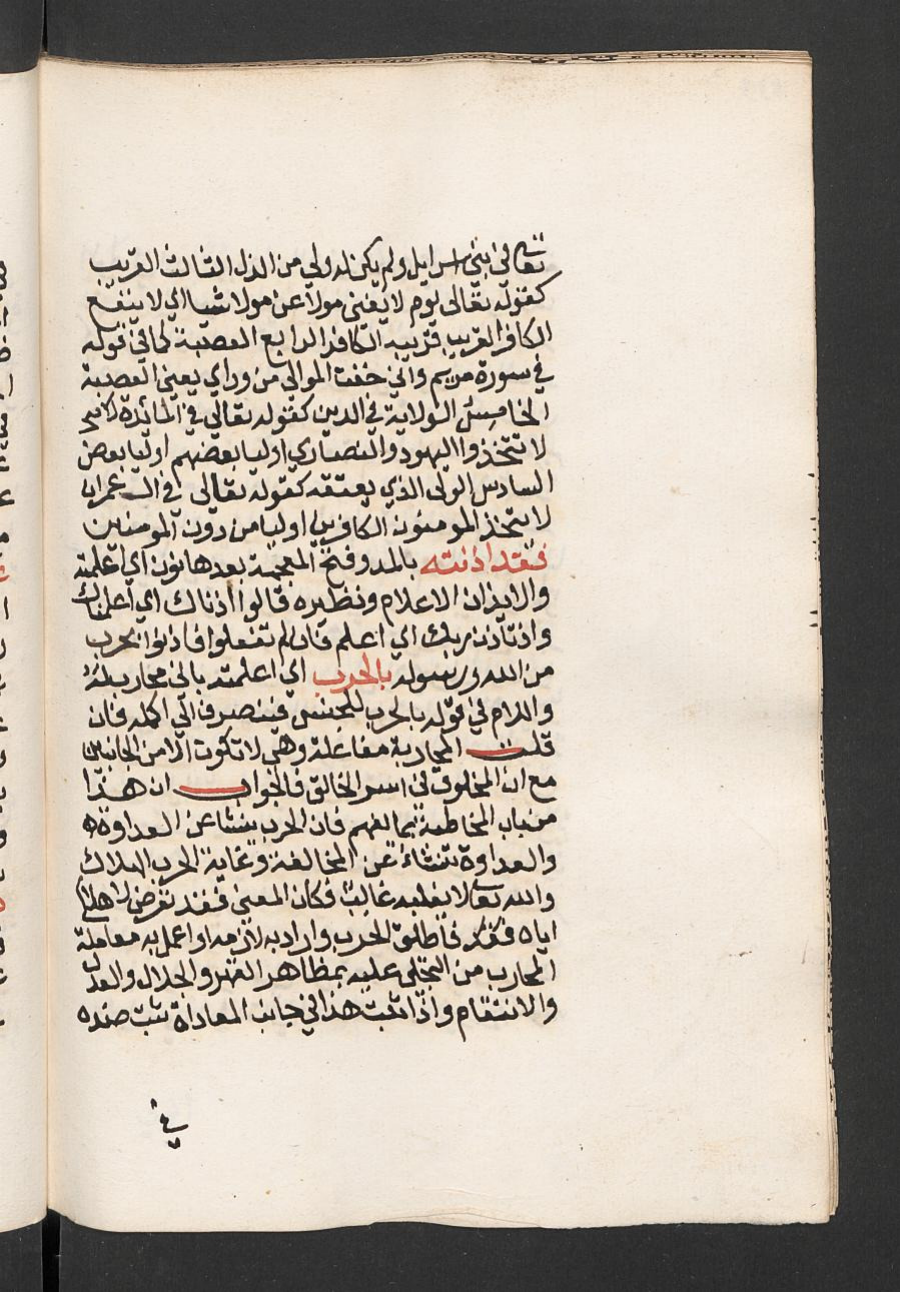 تعالى في بني اسرايل ولم يكن له ولي من الذل الثالث القريب
كقوله تعالى يوم لا يغني مولا عن مولا شيا اي لا ينفع
الكافر القريب قريبه الكافر الرابع العصبة كما في قوله
في سورة مريم واني خفت الموالي من وراي يعني العصبة
الخامس الولاية في الدين كقوله تعالى في المائدة
لا تتخذوا اليهود والنصارى اوليا بعضهم اوليا بعض
السادس الولى الذي يعتقه كقوله تعالى في ال عمران
لا يتخذ المومنون الكافرين اوليا من دون المومنين
فقد اذنته بالمد وفتح المعجمة بعدها نون اي اعلمته
والايذان الاعلام ونظيره قالوا اذناك اي اعلمناك
واذ تأذن ربك اي اعلم فان لم تفعلوا فاذنوا بحرب
من الله ورسوله بالحرب اي اعلمته باني محارب له
واللام في قوله بالحرب للجنس فينصرف الي اكمله فان
قلت المحاربة مفاعلة وهي لا تكون الا من الجانبين
مع ان المخلوق في اسر الخالق فالجواب ان هذا
من باب المخاطبة بما يفهم فان الحرب ينشا عن العداوة
والعداوة تنشاء عن المخالفة وغاية الحرب الهلاك
والله تعالى لا يغلبه غالب فكان المعنى فقد تعرض لاهلاكي
اياه فذكر فأطلق الحرب واراد به لازمه او اعمل به معاملة
المحارب من التجلي عليه بمظاهر القهر والجلال والعدل
والانتقام واذا ثبت هذا في جانب المعاداة ثبت ضده
في